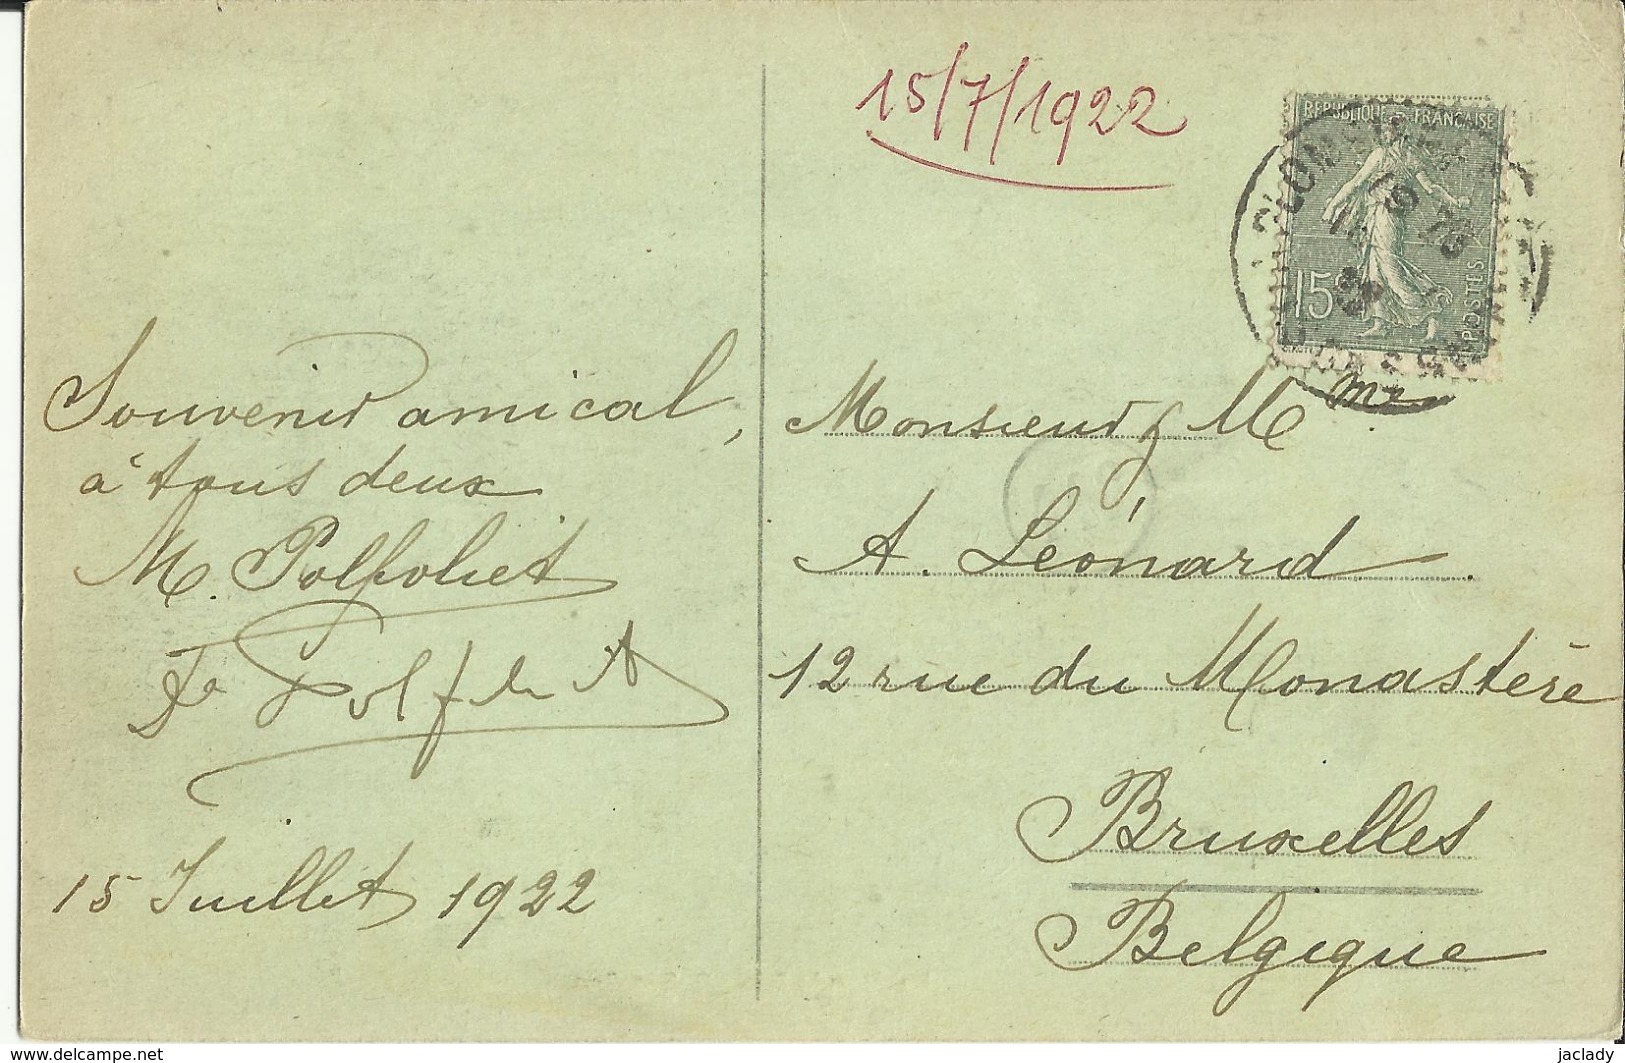 15/7/1922
REPUBLIQUE FRANCAISE
15c
POSTES
Souvenir amical,
à tous deux
M. Polfoliet
15 Juillet 1922
Monsieur & Mme
A. Léonard.
12 rue du Monastère
Bruxelles
Belgique
www.delcampe.net
jaclady